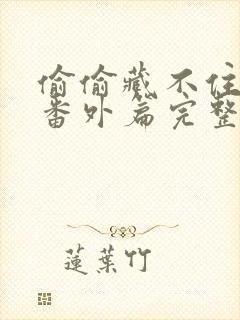 偷偷藏不住
番外篇完整
蓮葉竹